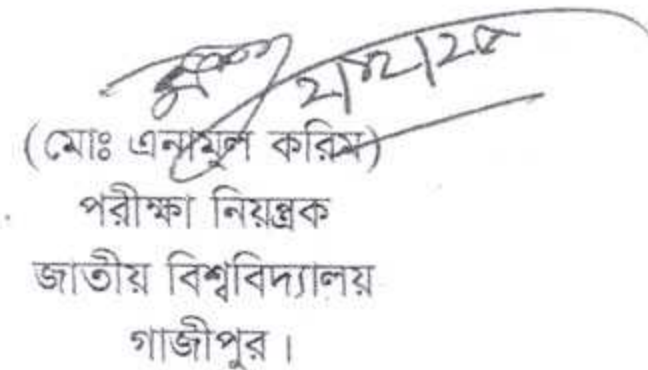 (মোঃ এনামুল করিম)
পরীক্ষা নিয়ন্ত্রক
জাতীয় বিশ্ববিদ্যালয়
গাজীপুর।